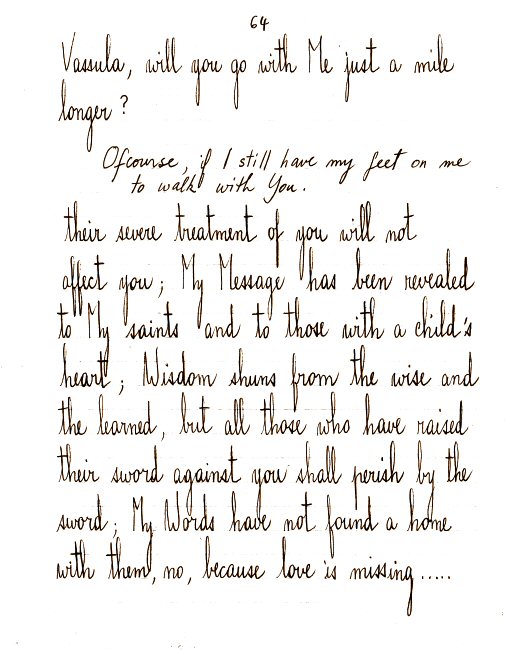 64
Vassula, will you go with Me just a mile
longer?
Ofcourse, if I still have my feet on me
to walk with You.
their severe treatment of you will not
affect you; My Message has been revealed
to My saints and to those with a child's
heart; Wisdom shuns from the wise and
the learned, but all those who have raised
their sword against you shall perish by the
sword; My Words have not found a home
with them, no, because love is missing.....